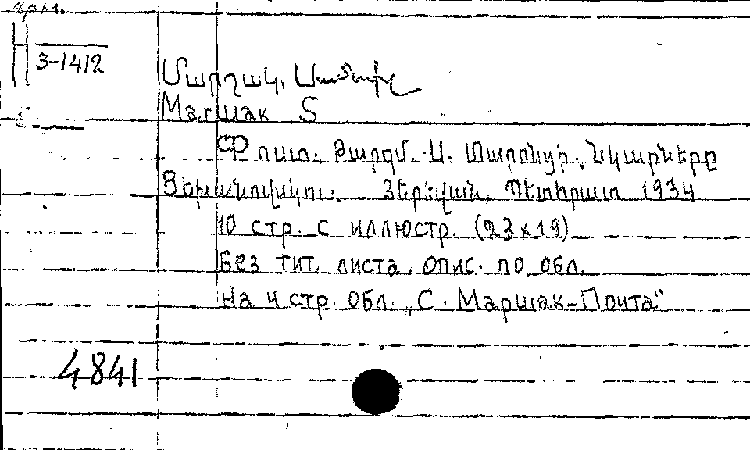 арм.
Н
3-1412
Մարշակ, Սամուիլ
Маршак S
Փոստ. Թարգմ. Ա. Մարտիր. Նկարները
Երևան, Պետհրատ 1934
10 стр. с иллюстр. (23х19)
Без тит. листа, опис. по обл.
На 4 стр. обл. „С. Маршак-Почта"
4841